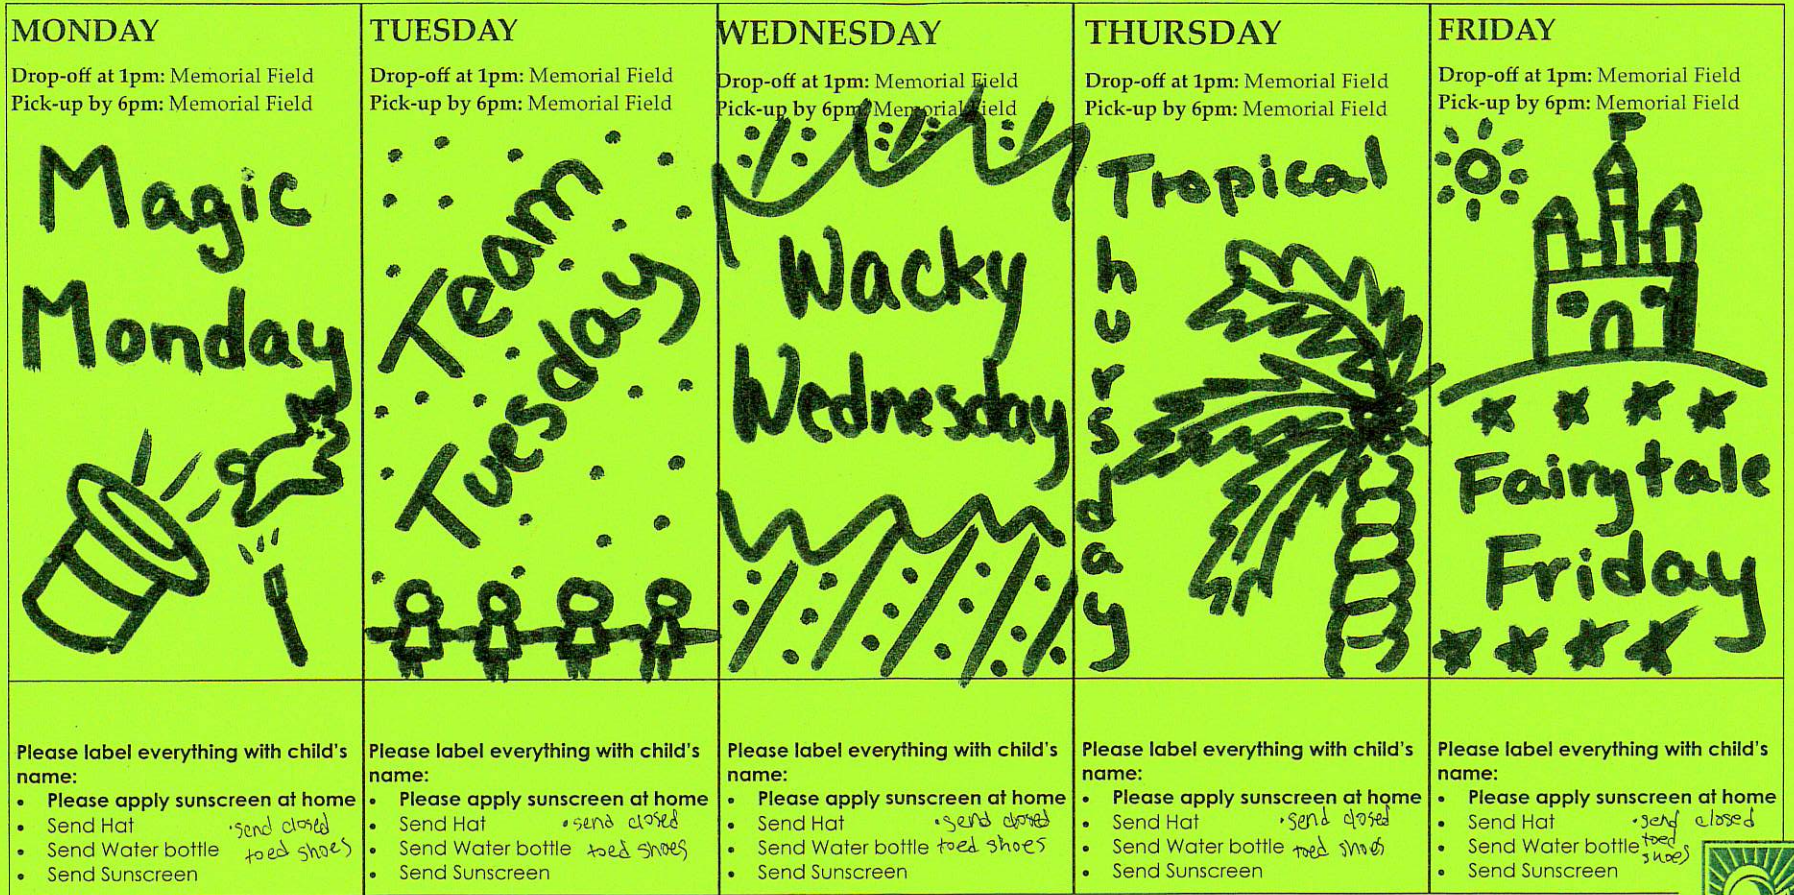 MONDAY
Drop-off at 1pm: Memorial Field
Pick-up by 6pm: Memorial Field
Magic
Monday
Please label everything with child's
name:
• Please apply sunscreen at home
• Send Hat
• Send Water bottle
• Send Sunscreen
• send closed
toed shoes
TUESDAY
Drop-off at 1pm: Memorial Field
Pick-up by 6pm: Memorial Field
Team
Tuesday
Please label everything with child's
name:
• Please apply sunscreen at home
• Send Hat
• Send Water bottle
• Send Sunscreen
• send closed
toed shoes
WEDNESDAY
Drop-off at 1pm: Memorial Field
Pick-up by 6pm: Memorial Field
Wacky
Wednesday
Please label everything with child's
name:
• Please apply sunscreen at home
• Send Hat
• Send Water bottle
• Send Sunscreen
• send closed
toed shoes
THURSDAY
Drop-off at 1pm: Memorial Field
Pick-up by 6pm: Memorial Field
Tropical
hursday
Please label everything with child's
name:
• Please apply sunscreen at home
• Send Hat
• Send Water bottle
• Send Sunscreen
• send closed
toed shoes
FRIDAY
Drop-off at 1pm: Memorial Field
Pick-up by 6pm: Memorial Field
Fairytale
Friday
Please label everything with child's
name:
• Please apply sunscreen at home
• Send Hat
• Send Water bottle
• Send Sunscreen
• send closed
toed
shoes